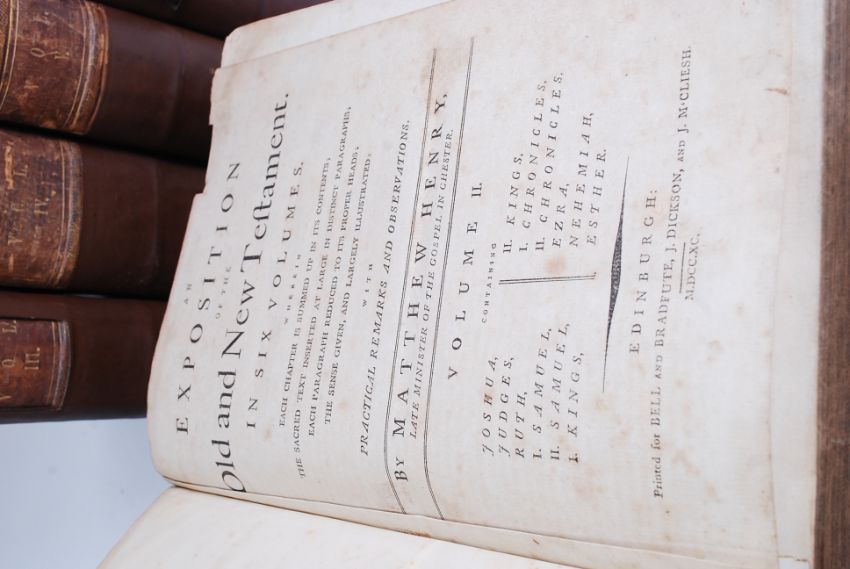 AN
EXPOSITION
OF THE
Old and New Teſtament.
IN SIX VOLUMES.
WHEREIN
EACH CHAPTER IS SUMMED UP IN ITS CONTENTS;
THE SACRED TEXT INSERTED AT LARGE IN DISTINCT PARAGRAPHS;
EACH PARAGRAPH REDUCED TO ITS PROPER HEADS;
THE SENSE GIVEN, AND LARGELY ILLUSTRATED;
WITH
PRACTICAL REMARKS AND OBSERVATIONS.
BY MATTHEW HENRY,
LATE MINISTER OF THE GOSPEL IN CHESTER.
VOLUME II.
CONTAINING
JOSHUA,
JUDGES,
RUTH,
I. SAMUEL,
II. SAMUEL,
I. KINGS,
II. KINGS,
I. CHRONICLES,
II. CHRONICLES,
EZRA,
NEHEMIAH,
ESTHER.
EDINBURGH:
Printed for BELL AND BRADFUTE, J. DICKSON, AND J. M‘CLIESH.
M.DCC.XC.
VOL
III.
VOL
IV.
VOL